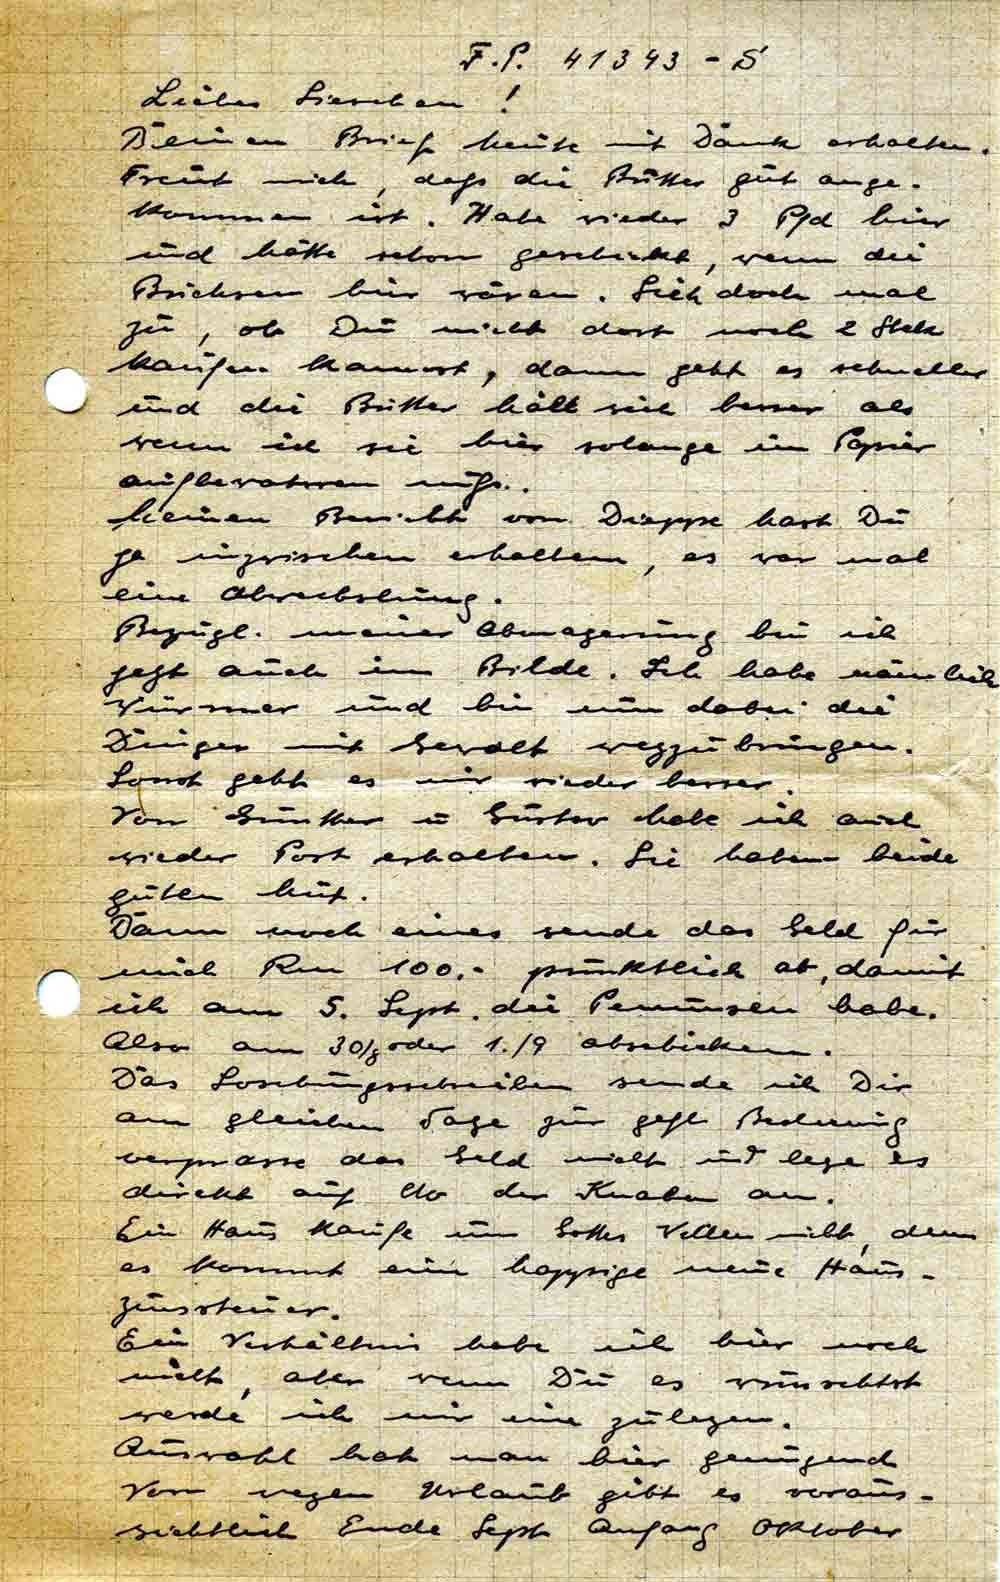 F.P. 41343-S
Liebes Lieschen!
Deinen Brief heute mit Dank erhalten.
Freut mich, daß die Butter gut ange-
kommen ist. Habe wieder 3 Pfd hier
und hätte schon geschickt, wenn die
Büchsen hier wären. Sieh doch mal
zu, ob Du nicht dort noch 2 Stck
kaufen kannst, dann geht es schneller
und die Butter hält sich besser als
wenn ich sie hier solange im Papier
aufbewahren muß.
Meinen Bericht von Dieppe hast Du
ja inzwischen erhalten, es war mal
eine Abwechslung.
Bezügl. meiner Abmagerung bin ich
jetzt auch im Bilde. Ich habe nämlich
Würmer und bin nun dabei die
Dinger mit Gewalt wegzubringen.
Sonst geht es mir wieder besser.
Von Günther u Gustav habe ich auch
wieder Post erhalten. Sie haben beide
guten Mut.
Dann noch eines sende das Geld für
mich Rm 100.- pünktlich ab, damit
ich am 5. Sept. die Penunsen habe.
Also am 30/8 oder 1./9 abschicken.
Das Löschungsschreiben sende ich Dir
am gleichen Tage zur gefl Bedienung
verprasse das Geld nicht und lege es
direkt auf Kto der Knaben an.
Ein Haus kaufe um Gottes Willen nicht, denn
es kommt eine happige neue Haus-
zinssteuer.
Ein Verhältnis habe ich hier noch
nicht, aber wenn Du es wünschtst
werde ich mir eine zulegen.
Auswahl hat man hier genügend
Von wegen Urlaub gibt es voraus-
sichtlich Ende Sept Anfang Oktober